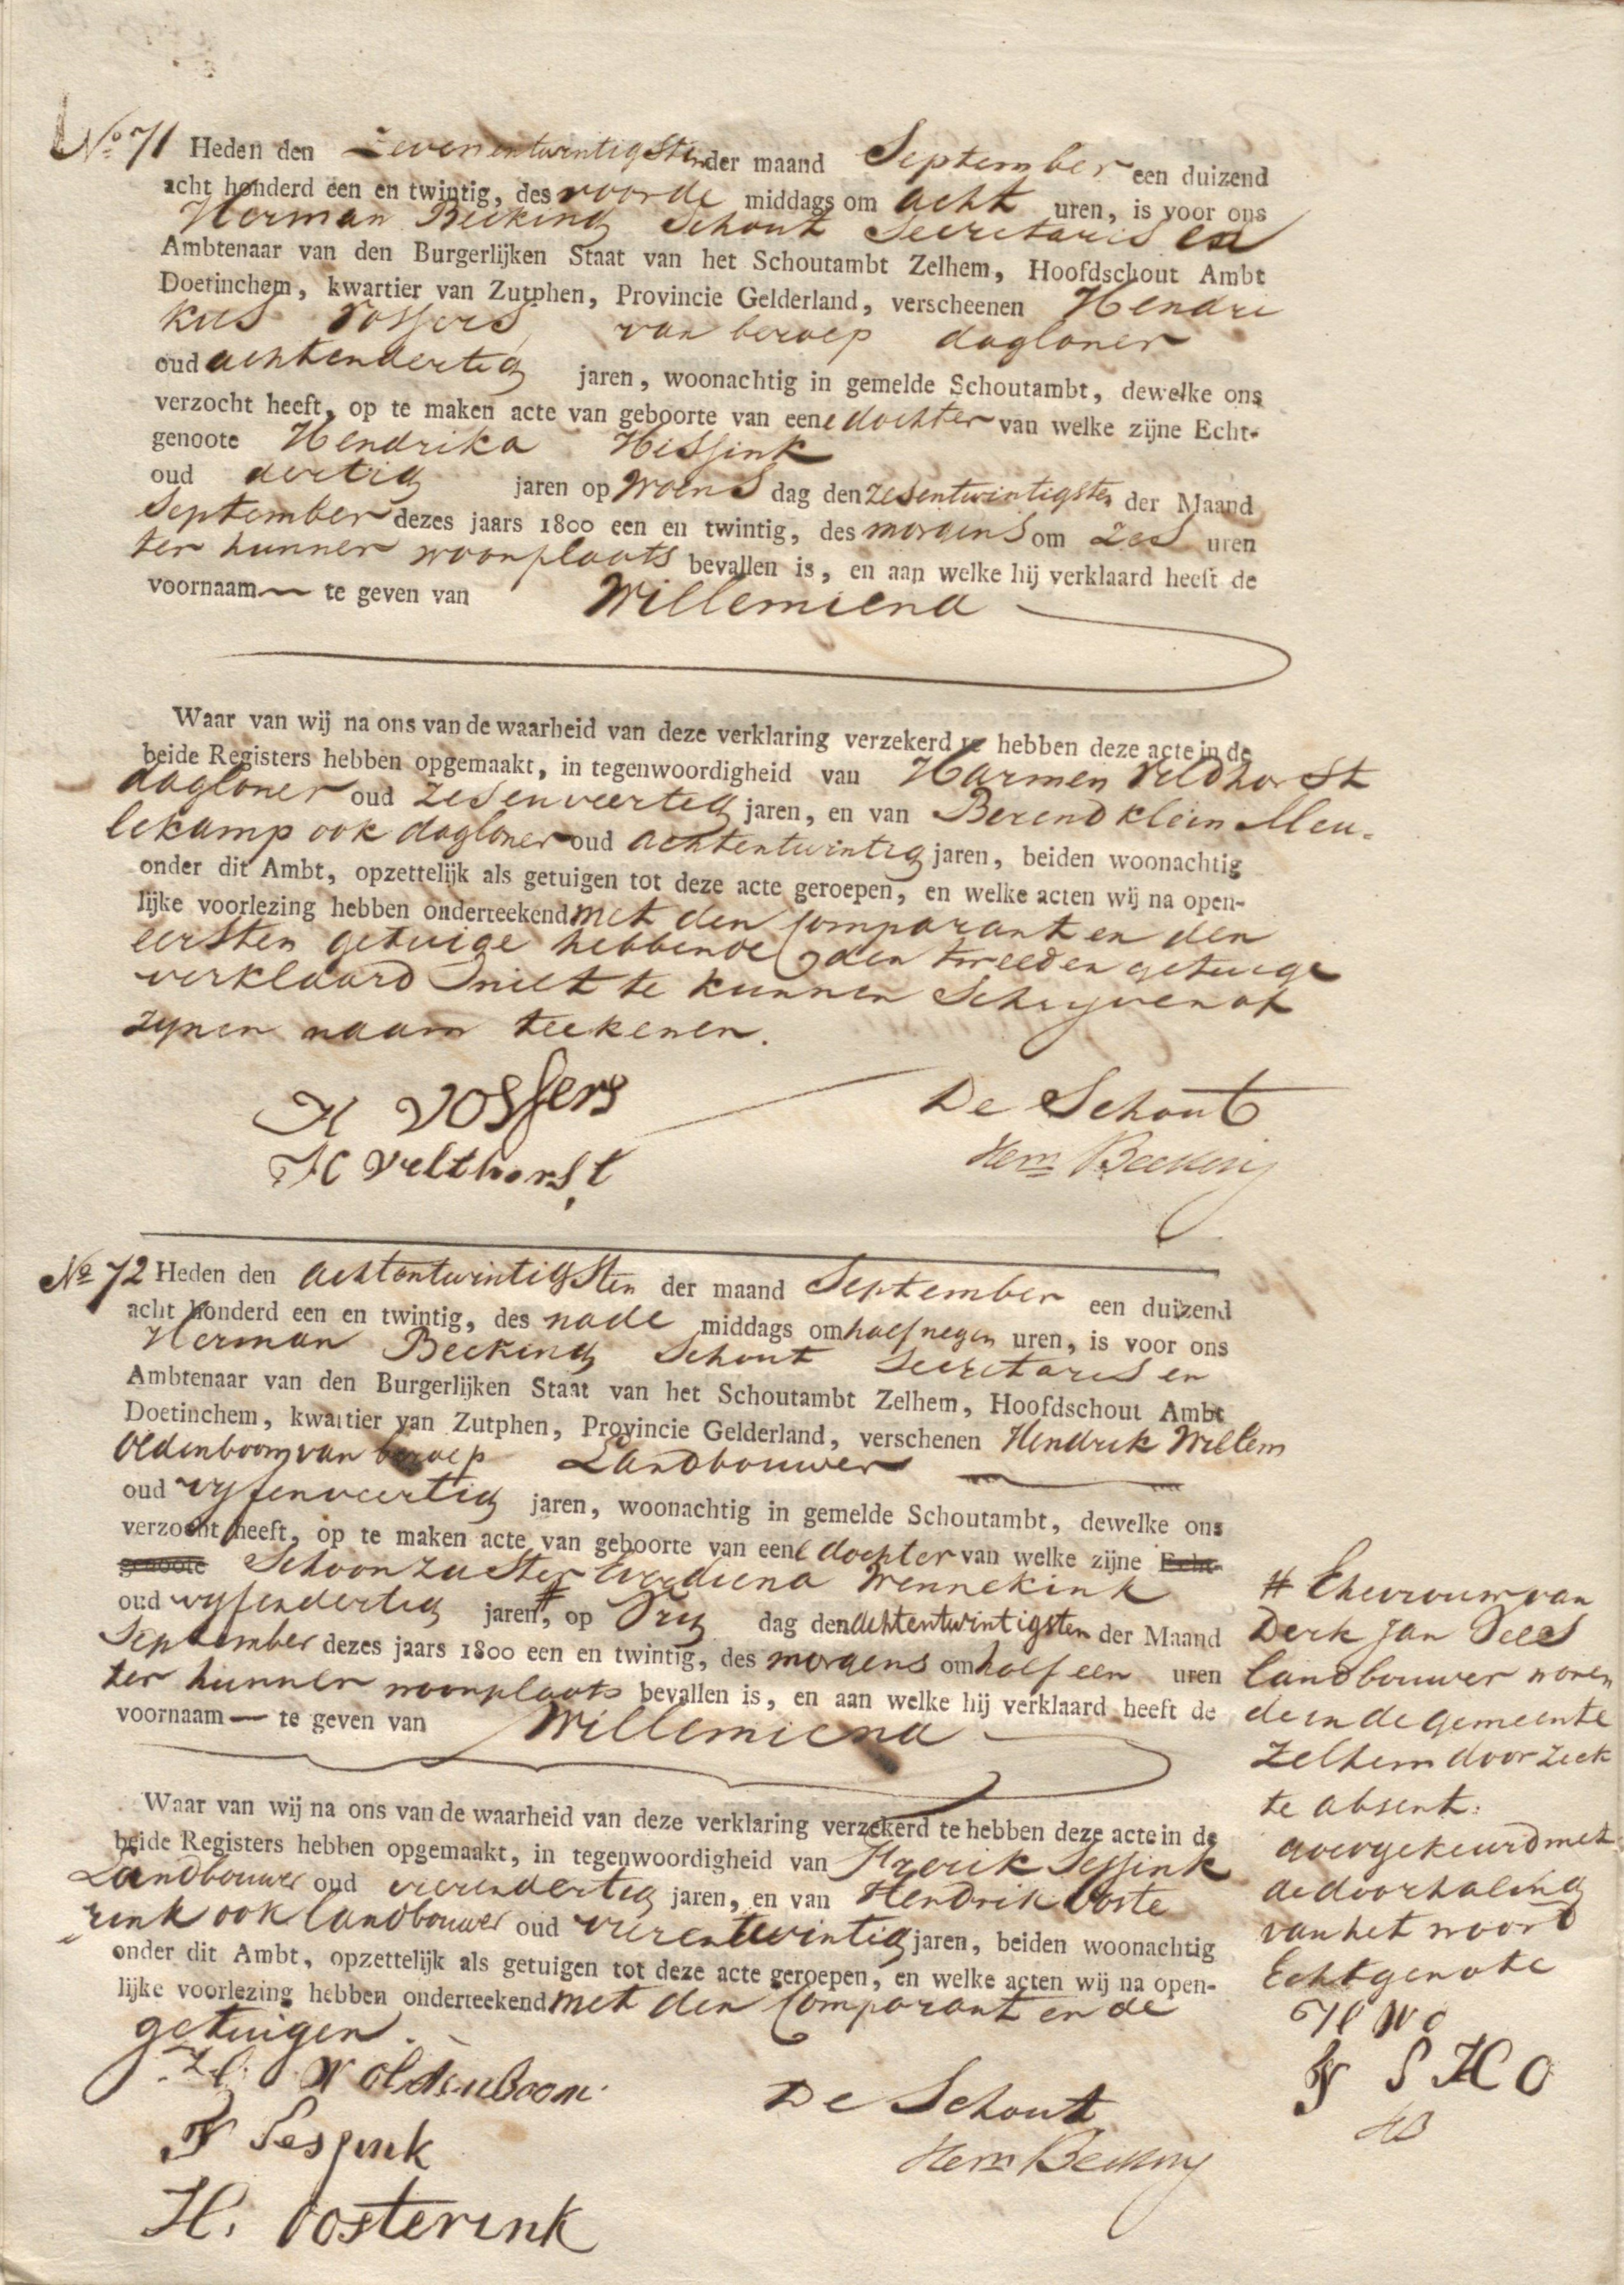 No 71 Heden den Zevenentwintigsten der maand September een duizend
acht honderd een en twintig, des voorde middags om acht uren, is voor ons
Herman Becking Schout Secretaris en
Ambtenaar van den Burgerlijken Staat van het Schoutambt Zelhem, Hoofdschout Ambt
Doetinchem, kwartier van Zutphen, Provincie Gelderland, verscheenen Hendri
kus Vossers, van beroep dagloner
oud achtendertig jaren, woonachtig in gemelde Schoutambt, dewelke ons
verzocht heeft, op te maken acte van geboorte van eene dochter van welke zijne Echt-
genoote Hendrika Hissink
oud dertig jaren op Woens dag den zesentwintigsten der Maand
September dezes jaars 1800 een en twintig, des morgens om zes uren
ter hunner woonplaats bevallen is, en aan welke hij verklaard heeft de
voornaam — te geven van Willemiena
Waar van wij na ons van de waarheid van deze verklaring verzekerd te hebben deze acte in de
beide Registers hebben opgemaakt, in tegenwoordigheid van Harmen Veldhorst
dagloner oud zesenveertig jaren, en van Berend klein Meu-
lekamp ook dagloner oud achtentwintig jaren, beiden woonachtig
onder dit Ambt, opzettelijk als getuigen tot deze acte geroepen, en welke acten wij na open-
lijke voorlezing hebben onderteekend met den Comparant en den
eersten getuige hebbende den tweeden getuige
verklaard niet te kunnen Schryven of
zynen naam teekenen.
H Vossers
De Schout
H Velthorst
Herm Becking
No 72 Heden den achtentwintigsten der maand September een duizend
acht honderd een en twintig, des nade middags om half negen uren, is voor ons
Herman Becking Schout Secretaris en
Ambtenaar van den Burgerlijken Staat van het Schoutambt Zelhem, Hoofdschout Ambt
Doetinchem, kwartier van Zutphen, Provincie Gelderland, verschenen Hendrik Willem
Oldenboom van beroep Landbouwer
oud vyfenveertig jaren, woonachtig in gemelde Schoutambt, dewelke ons
verzocht heeft, op te maken acte van geboorte van eene dochter van welke zijne Echt-
genoote Schoonzuster Everdiena Wennekink
oud vyfendertig jaren #, op Vry dag den achtentwintigsten der Maand
September dezes jaars 1800 een en twintig, des morgens om half een uren
ter hunner woonplaats bevallen is, en aan welke hij verklaard heeft de
voornaam — te geven van Willemiena
Waar van wij na ons van de waarheid van deze verklaring verzekerd te hebben deze acte in de
beide Registers hebben opgemaakt, in tegenwoordigheid van Frerik Sessink
Landbouwer oud vierendertig jaren, en van Hendrik Ooste
rink ook landbouwer oud vierentwintig jaren, beiden woonachtig
onder dit Ambt, opzettelijk als getuigen tot deze acte geroepen, en welke acten wij na open-
lijke voorlezing hebben onderteekend met den Comparant en de
getuigen.
H W Oldenboom
F Sessink
H. Oosterink
De Schout
Herm Becking
# Ehevrouw van
Derk Jan
landbouwer wonen
de in de gemeente
Zelhem door ziek
te absent.
goedgekeurd met
de doorhaling
van het woord
Echtgenote
H W O
F S H O
HB